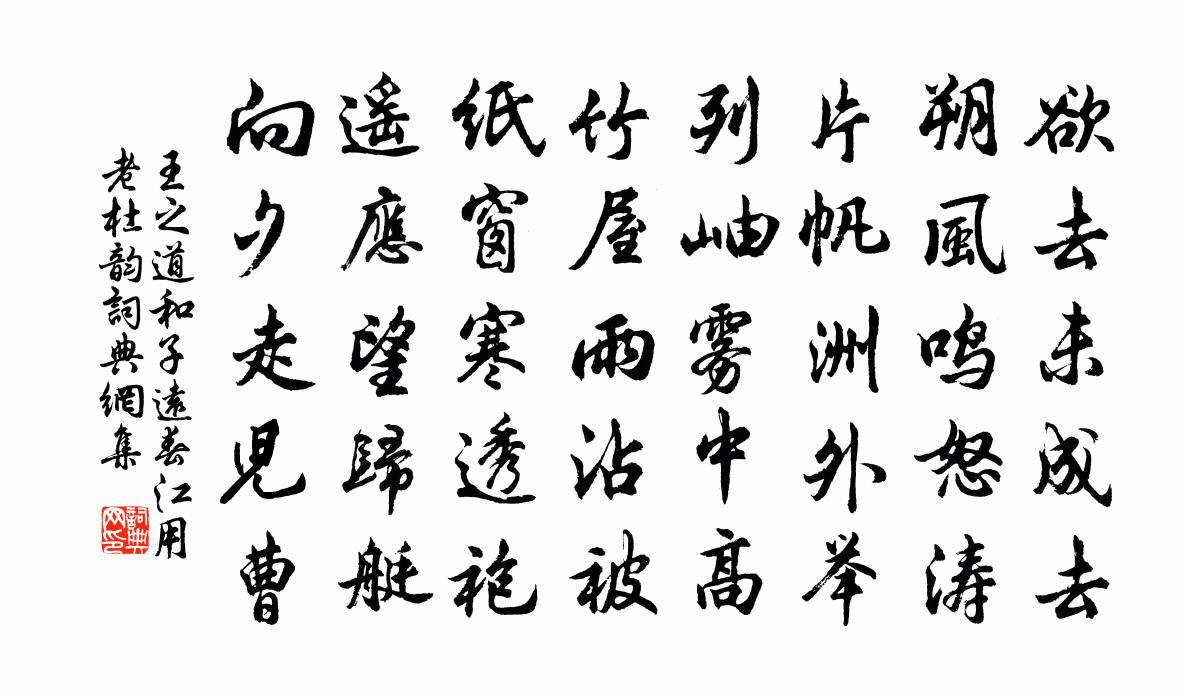 欲去未成去
朔風鳴怒涛
片帆洲外举
列岫雾中高
竹屋雨沾被
纸窗寒透袍
遥應望歸艇
向夕走児曹
王之道和子遠春江用
老杜韵詞典網集
詞典网印